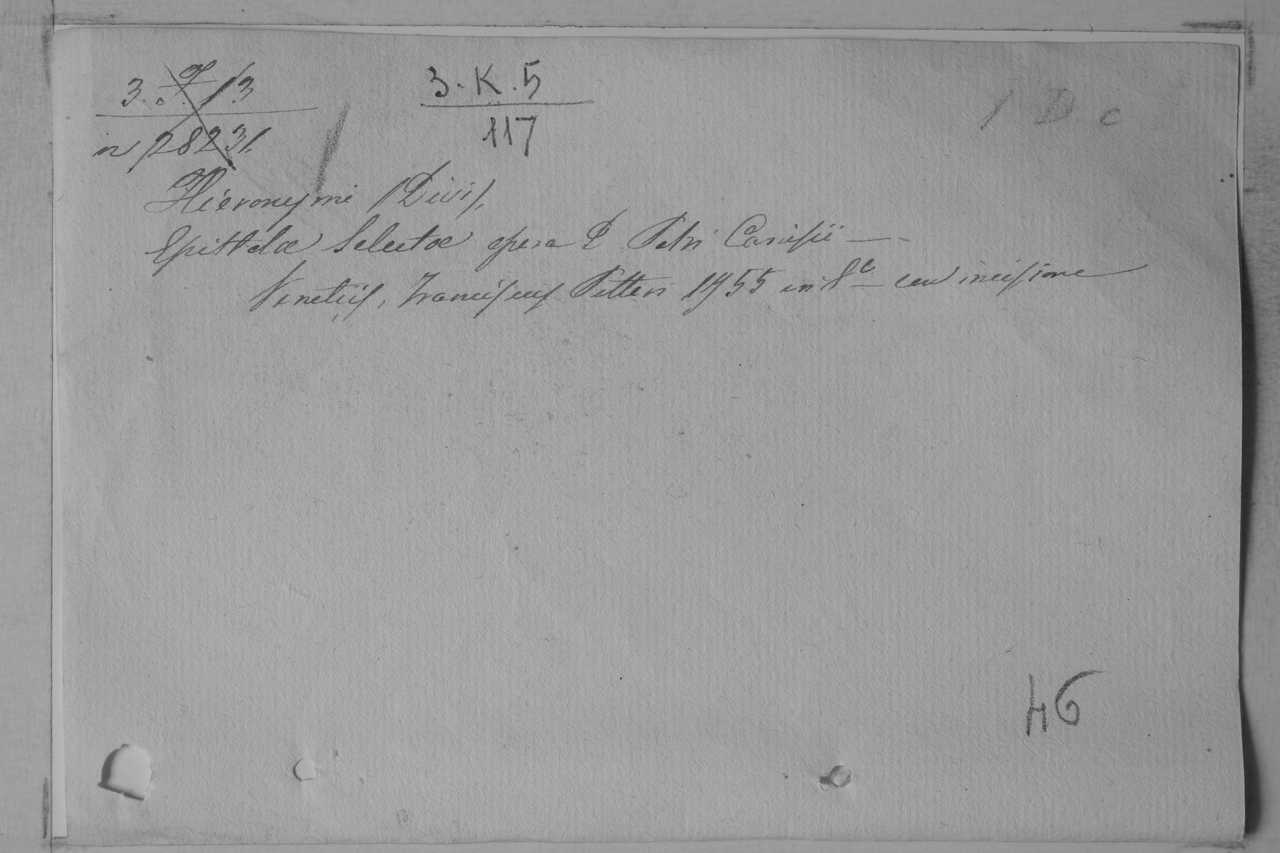 3. 13
3.K.5
1 D c
n 28231
117
Hieronymi Divi,
Epistolæ Selectæ opera P Petri Canisii —
Venetiis, Franciscus Pitteri 1755 in 8º — con incisione
46